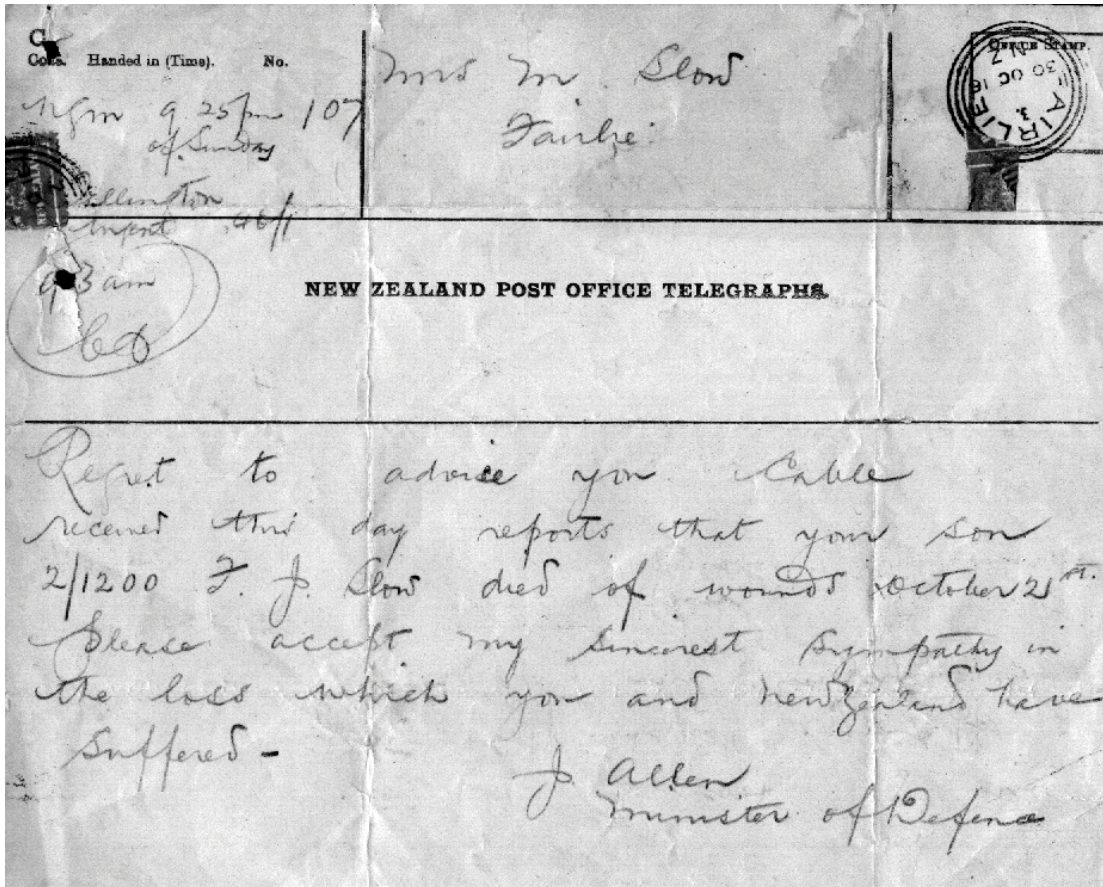 Code. Handed in (Time). No.
9 25 pm 107
of Sunday
Wellington
Urgent
9.3 am
Mrs M. Slow
Fairlie
OFFICE STAMP.
FAIRLIE
N.Z
30 OC 16
3
NEW ZEALAND POST OFFICE TELEGRAPHS.
Regret to advise you Cable
received this day reports that your son
2/1200 F. J. Slow died of wounds October 21st.
Please accept my sincerest sympathy in
the loss which you and New Zealand have
suffered -
J. Allen
Minister of Defence